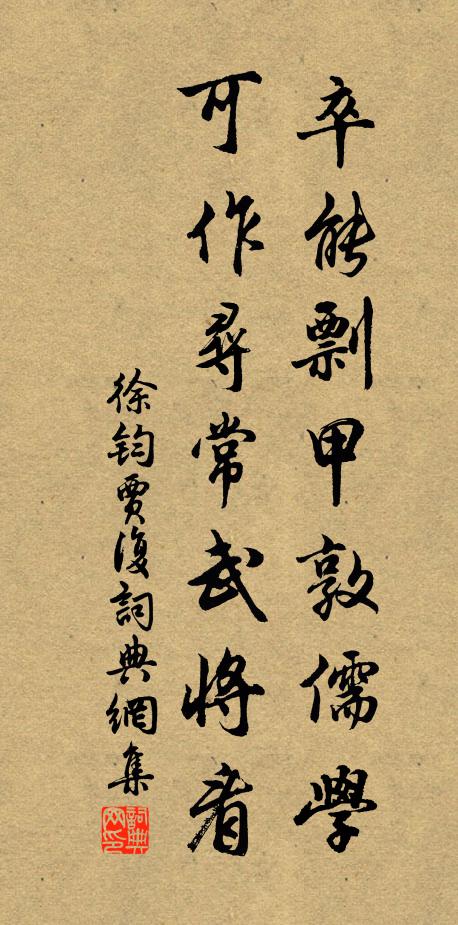 卒能剽甲敦儒學
可作尋常武將看
徐鈞賈復詞典網集
詞典網印